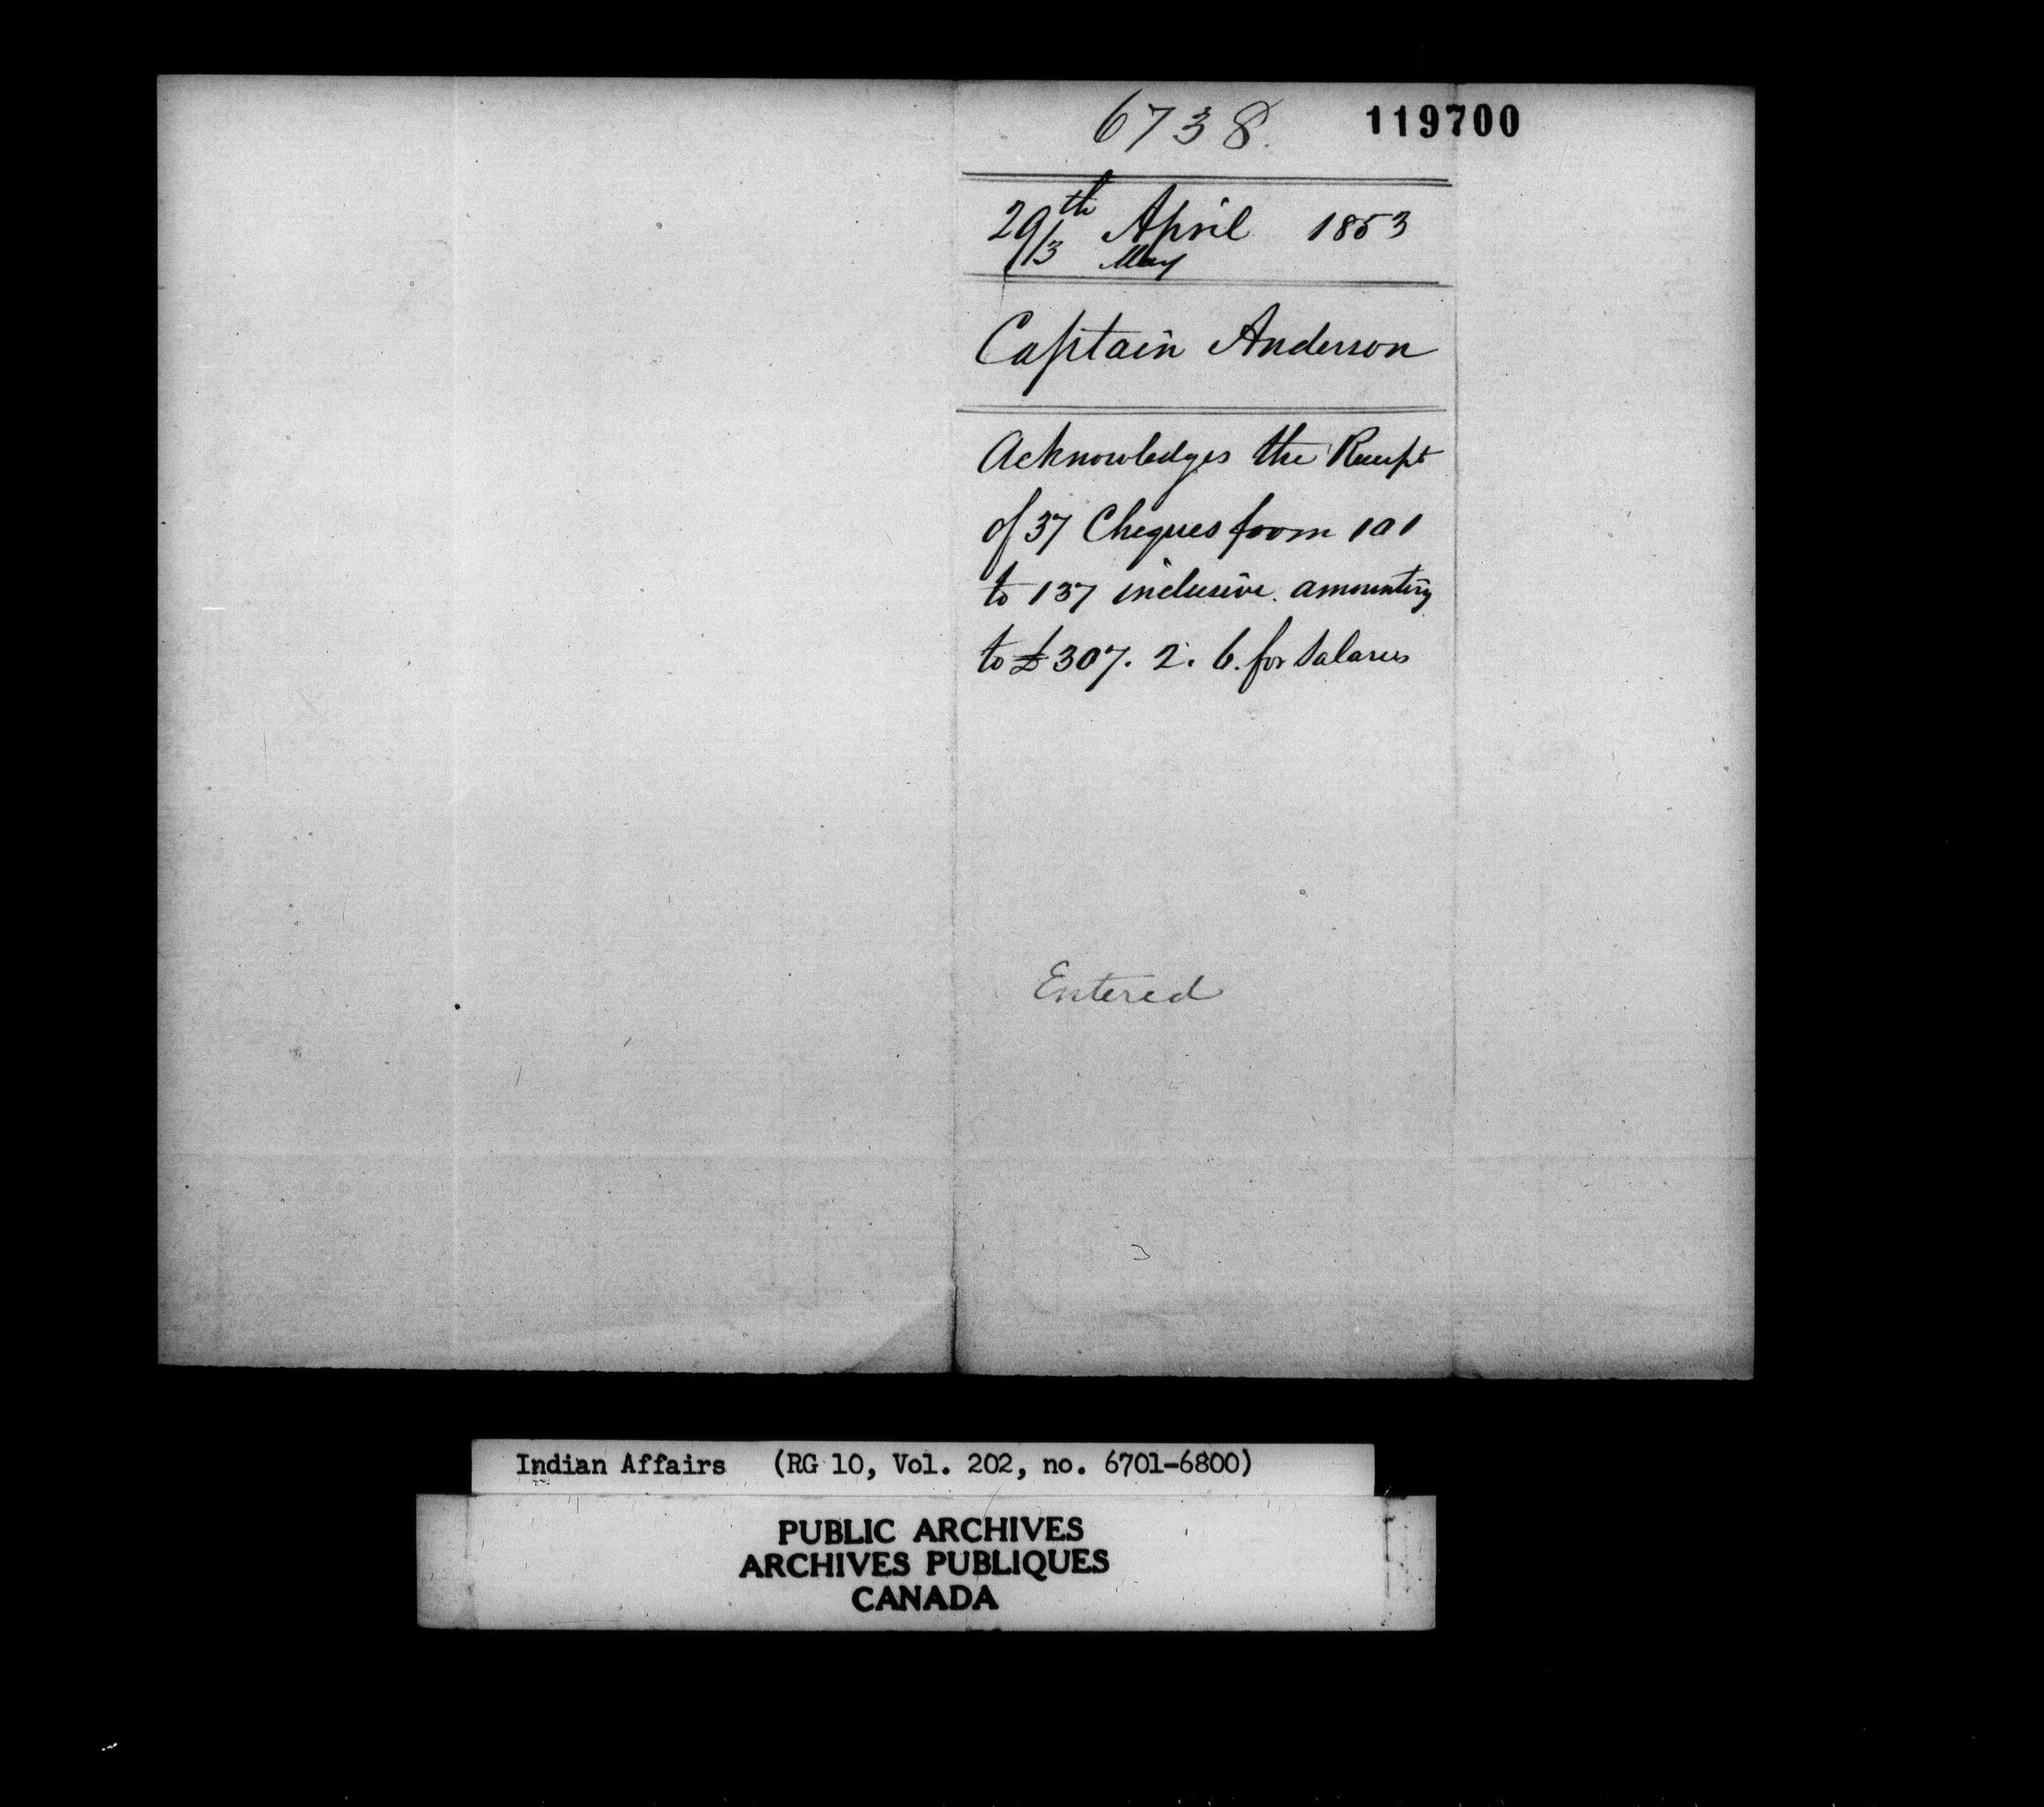 6738.
119700
29th April 1853
/3 May
Captain Anderson
Acknowledges the Receipt
of 37 Cheques from 101
to 137 inclusive. amounting
to £307. 2. 6. for Salaries
Entered
Indian Affairs (RG 10, Vol. 202, no. 6701-6800)
PUBLIC ARCHIVES
ARCHIVES PUBLIQUES
CANADA